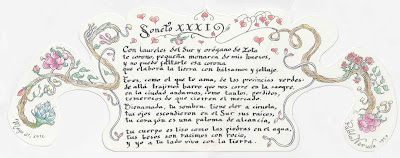 Soneto XXXI
Con laureles del Sur y orégano de Lota
te corono, pequeña monarca de mis huesos,
y no puede faltarte esa corona
que elabora la tierra con bálsamo y follaje.
Eres, como el que te ama, de las provincias verdes:
de allá trajimos barro que nos corre en la sangre,
en la ciudad andamos, como tantos, perdidos,
temerosos de que cierren el mercado.
Bienamada, tu sombra tiene olor a ciruela,
tus ojos escondieron en el Sur sus raíces,
tu corazón es una paloma de alcancía,
tu cuerpo es liso como las piedras en el agua,
tus besos son racimos con rocío,
y yo a tu lado vivo con la tierra.
2012
Pablo Neruda